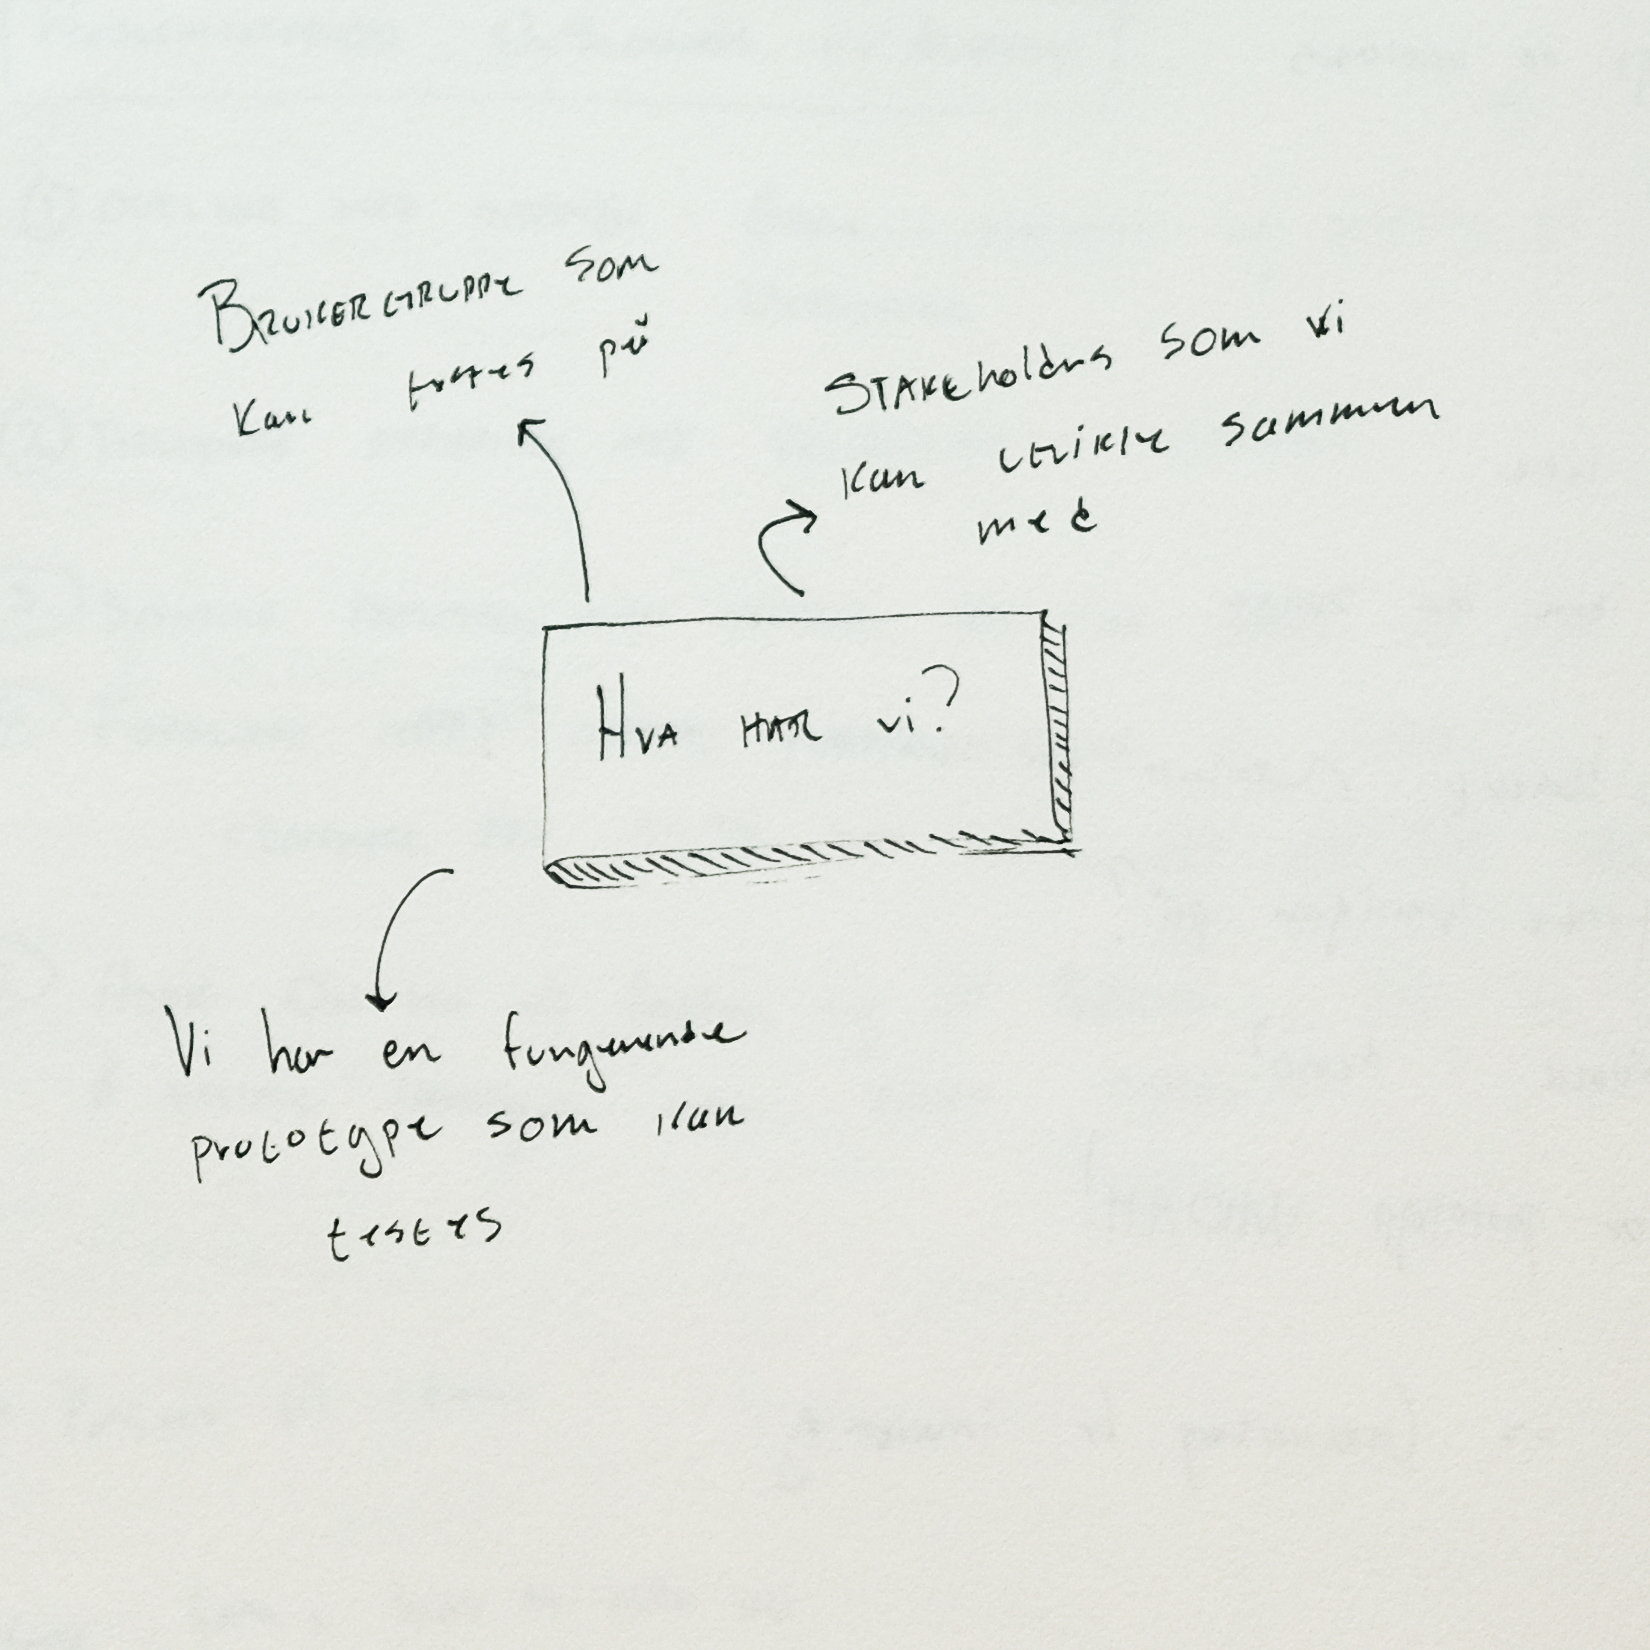 Brukergruppe som
kan testes på
Stakeholders som vi
kan utvikle sammen
med
Hva har vi?
Vi har en fungerende
prototype som kan
testes